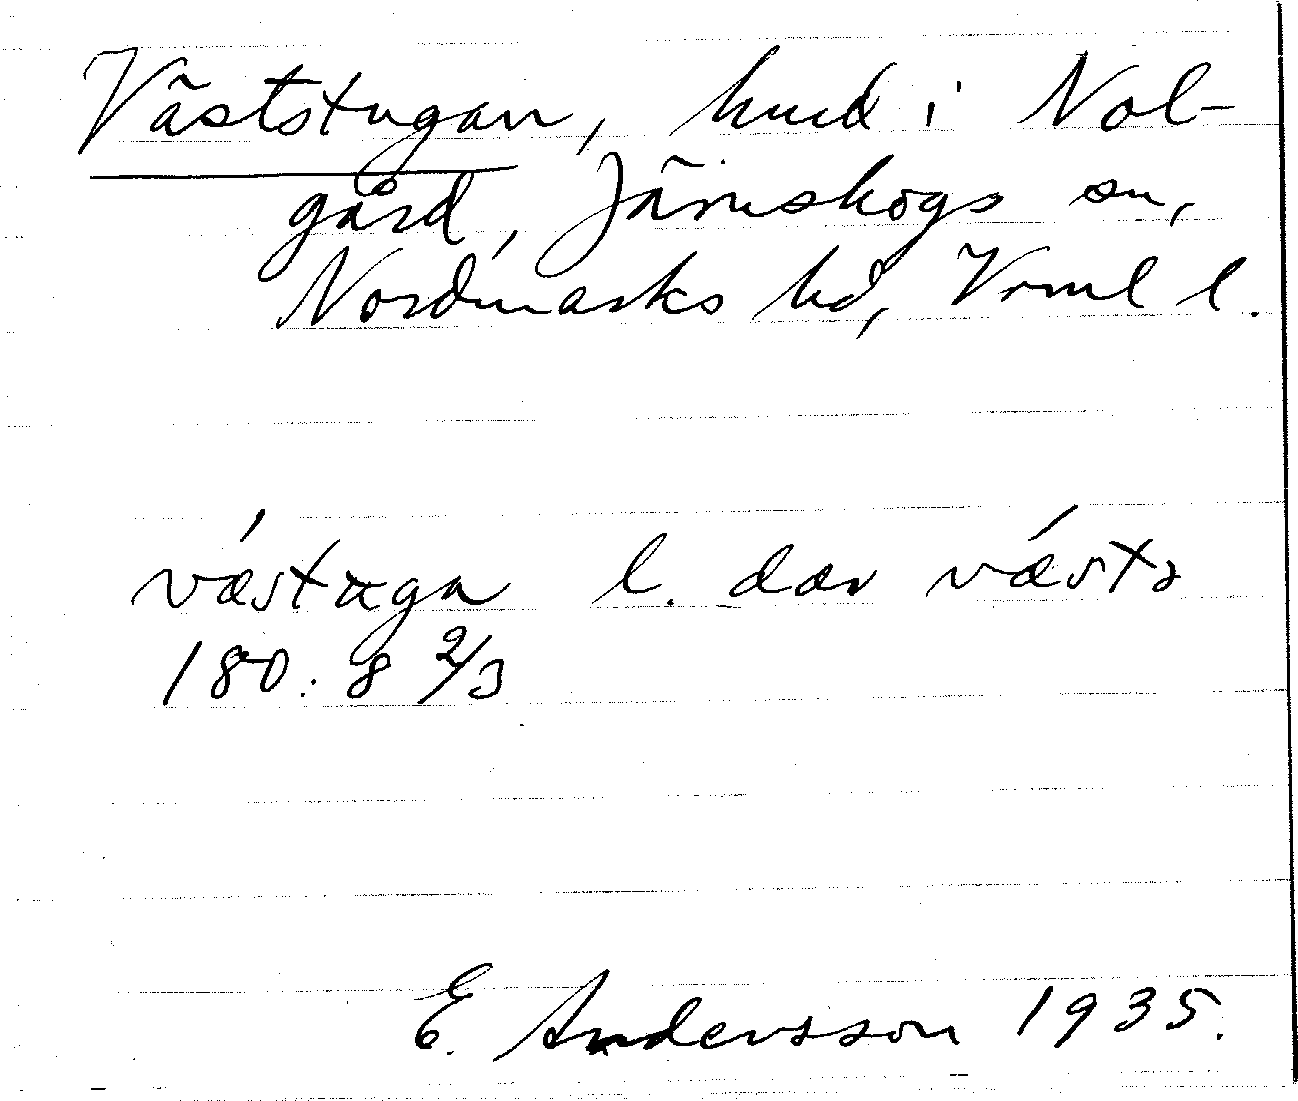 Väststugan, hmd i Nol-
gård, Järnskogs sn,
Nordmarks hd, Vrml l.
vǽstuga l. dær vǽsts
180: 8 2/3
E. Andersson 1935.